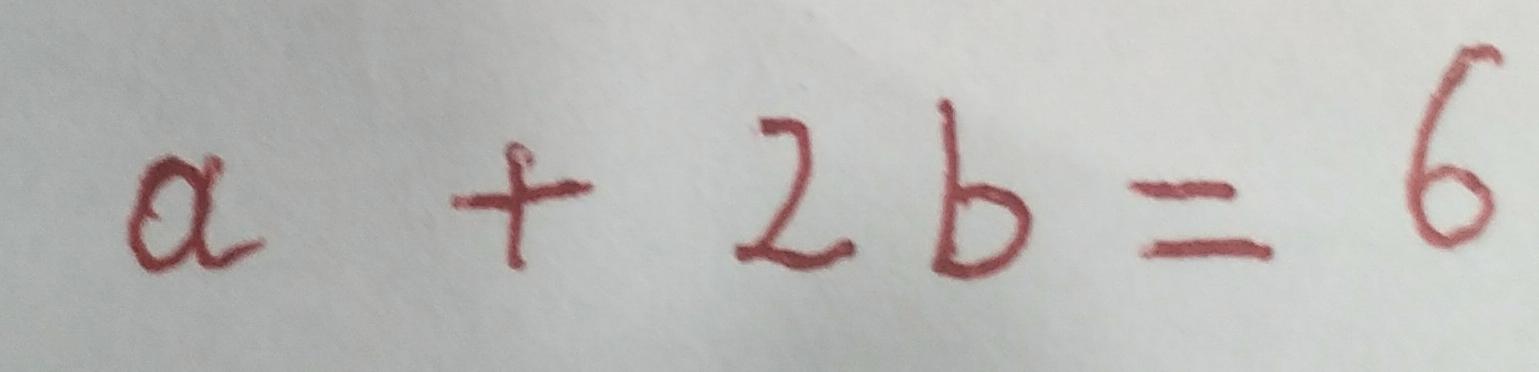 a + 2b = 6